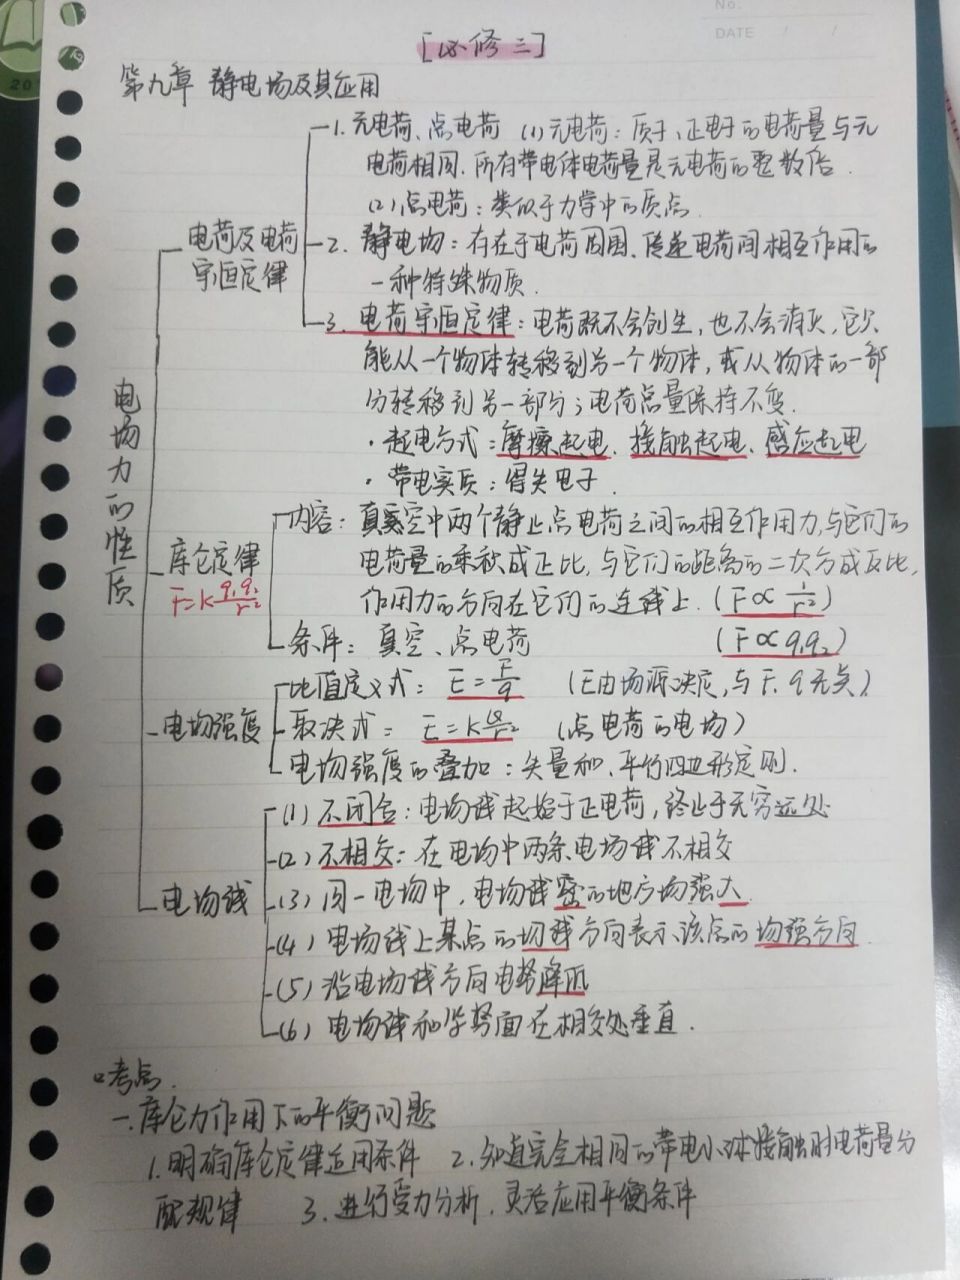 No.
DATE / /
[必修三]
第九章 静电场及其应用
1. 元电荷、点电荷 (1)元电荷：质子、正电子的电荷量与元
电荷相同，所有带电体电荷量是元电荷的整数倍．
(2)点电荷：类似于力学中的质点．
电荷及电荷
守恒定律
2. 静电场：存在于电荷周围、传递电荷间相互作用的
一种特殊物质．
3. 电荷守恒定律：电荷既不会创生，也不会消灭，它只
能从一个物体转移到另一个物体，或从物体的一部
分转移到另一部分；电荷总量保持不变．
· 起电方式：摩擦起电、接触起电、感应起电
· 带电实质：得失电子．
电场力的性质
库仑定律
F=k q₁q₂/r²
内容：真空中两个静止点电荷之间的相互作用力，与它们的
电荷量的乘积成正比，与它们的距离的二次方成反比，
作用力的方向在它们的连线上．(F∝ 1/r²)
条件：真空、点电荷 (F∝q₁q₂)
电场强度
比值定义式：E=F/q (E由场源决定，与F、q无关)
取决式：E=k Q/r² (点电荷的电场)
电场强度的叠加：矢量和、平行四边形定则．
电场线
(1) 不闭合：电场线起始于正电荷，终止于无穷远处
(2) 不相交：在电场中两条电场线不相交
(3) 同一电场中，电场线密的地方场强大．
(4) 电场线上某点的切线方向表示该点的场强方向．
(5) 沿电场线方向电势降低
(6) 电场线和等势面在相交处垂直．
考点．
一.库仑力作用下的平衡问题
1. 明确库仑定律适用条件 2. 知道完全相同的带电小球接触时电荷量分
配规律 3. 进行受力分析，灵活应用平衡条件